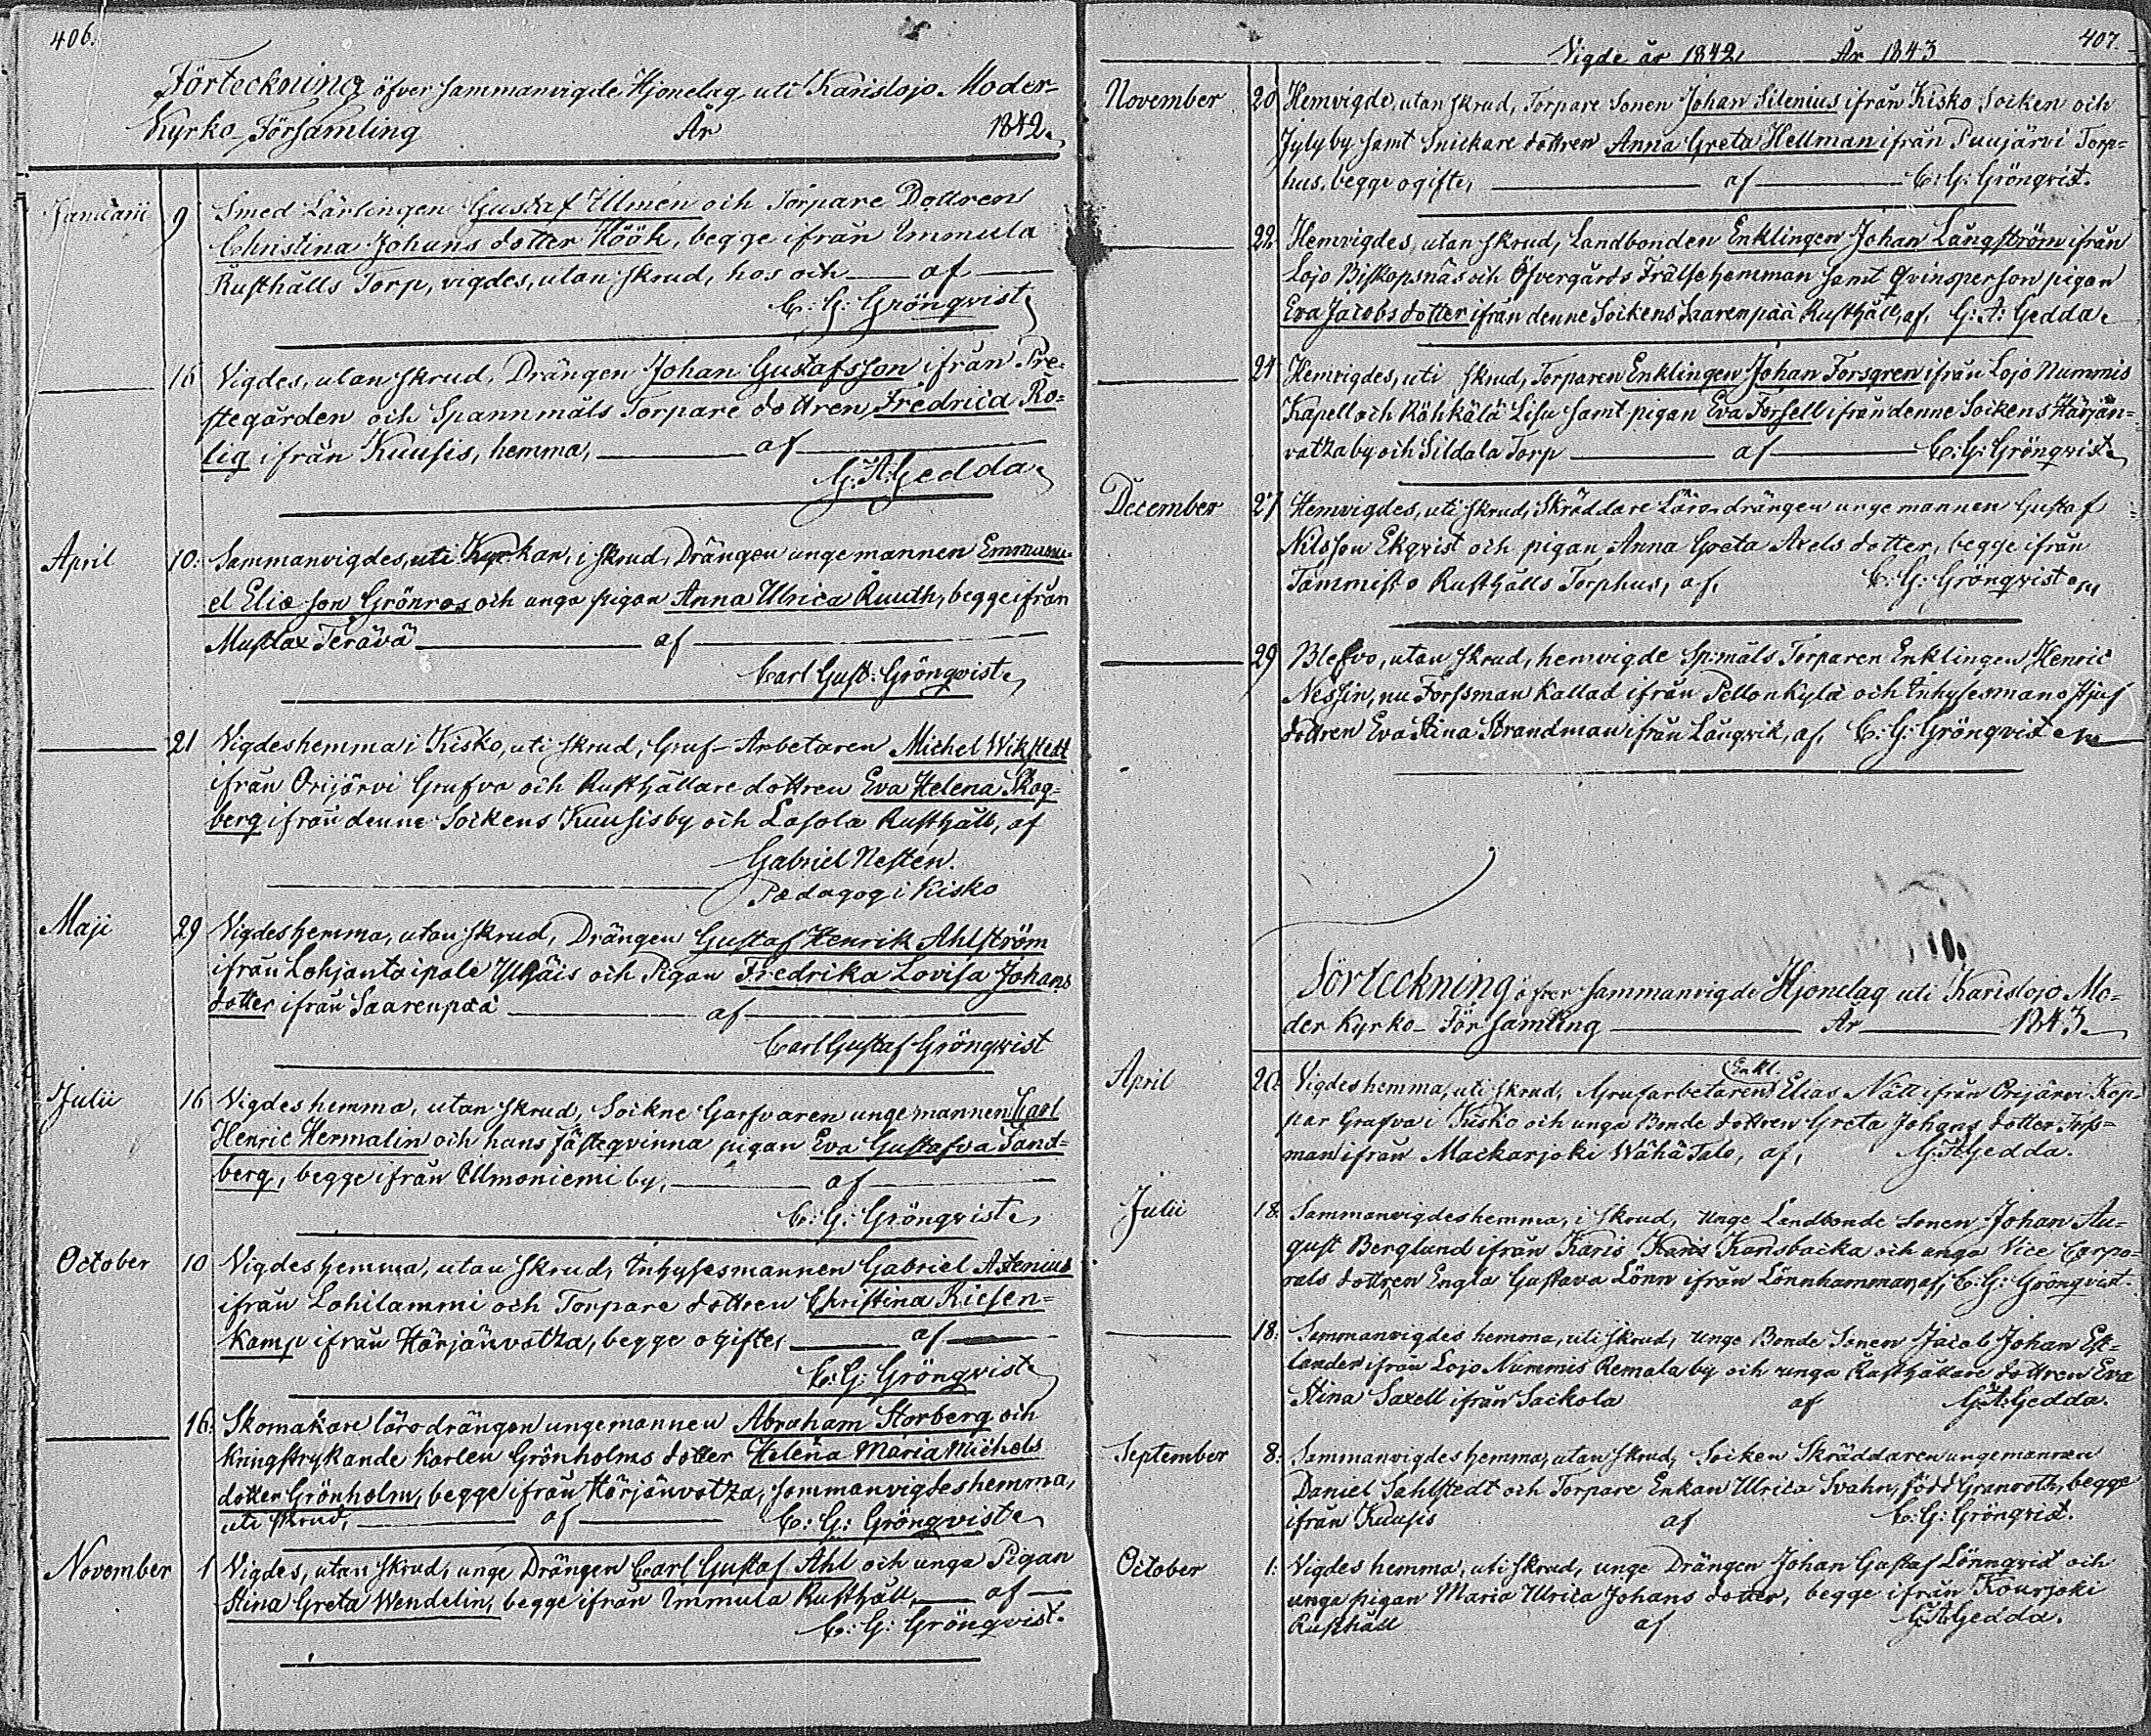 406.
Förteckning öfver sammanvigde Hjonelag uti Karislojo Moder-
Kyrko-Församling År 1842.
Januarii 9 Smed Lärlingen Gustaf Ulmén och Torpare Dottren
Christina Johans dotter Höök, begge ifrån Immula
Rusthålls Torp, vigdes, utan skrud, hos och af
C: G: Grönqvist
16 Vigdes, utan skrud, Drängen Johan Gustafsson ifrån Pre-
stegården och Spannmåls Torpare dottren Fredrica Ro-
lig ifrån Kuusis, hemma, af
G: A: Gedda
April 10: Sammanvigdes, uti Kyrkan, i skrud, Drängen unge mannen Emmanu-
el Eliæ son Grönros och unga pigan Anna Ulrica Ruuth, begge ifrån
Mustlax Terävä af
Carl Gust: Grönqvist
21 Vigdes hemma i Kisko, uti skrud, Gruf-Arbetaren Michel Wikstedt
ifrån Orijärvi Grufva och Rusthållare dottren Eva Helena Skog-
berg ifrån denne Sockens Kuusis by och Lasola Rusthåll, af
Gabriel Nestén.
Pædagog i Kisko
Maji 29 Vigdes hemma, utan skrud, Drängen Gustaf Henrik Ahlström
ifrån Lohjantaipale och Pigan Fredrika Lovisa Johans
dotter ifrån Saarenpää af
Carl Gustaf Grönqvist
Julii 16 Vigdes hemma, utan skrud, Sockne Garfvaren unge mannen Carl
Henric Hermalin och hans fästeqvinna pigan Eva Gustafva Sand-
berg, begge ifrån Ilmoniemi by, af
C: G: Grönqvist
October 10 Vigdes hemma, utan skrud, Inhysesmannen Gabriel Astenius
ifrån Lohilammi och Torpare dottren Christina Riesen-
kamp ifrån Härjänvatza, begge ogifte, af
C: G: Grönqvist
16: Skomakare lärodrängen unge mannen Abraham Storberg och
kringstrykande karlen Grönholms dotter Helena Maria Michels
dotter Grönholm, begge ifrån Härjänvatza, sammanvigdes hemma,
uti skrud, af C: G: Grönqvist
November 1 Vigdes, utan skrud, unge Drängen Carl Gustaf Ahl och unga Pigan
Stina Greta Wendelin, begge ifrån Immula Rusthåll, af
C: G: Grönqvist.
Vigde år 1842 År 1843 407.
November 20 Hemvigde, utan skrud, Torpare Sonen Johan Silenius ifrån Kisko Socken och
Jyly by samt Snickare dottren Anna Greta Hellman ifrån Puujärvi Torp-
hus, begge ogifte, af C: G: Grönqvist.
22. Hemvigdes, utan skrud, Landbonden Enklingen Johan Långström ifrån
Lojo Biskopsnäs och Öfvergårds Frälsehemman samt Qvinsperson pigan
Eva Jacobs dotter ifrån denne Sockens Saarenpää Rusthåll, af, G: A: Gedda
24 Hemvigdes, uti skrud, Torparen Enklingen Johan Forsgren ifrån Lojo Nummis
Kapell och Röhkälä Lisu samt pigan Eva Forsell ifrån denne Sockens Härjän-
vatza by och Sildala Torp af C: G: Grönqvist
December 27 Hemvigdes, uti skrud, Skräddare Läro-drängen unge mannen Gustaf
Nilsson Ekqvist och pigan Anna Greta Axels dotter, begge ifrån
Tammisto Rusthålls Torphus, af, C: G: Grönqvist
29 Blefvo, utan skrud, hemvigde Sp:måls Torparen Enklingen Henric
Nessin, nu Forssman kallad ifrån Pellonkylä och Inhysesmans
dottren Eva Stina Strandman ifrån Långvik, af, C: G: Grönqvist
Förteckning öfver sammanvigde Hjonelag uti Karislojo Mo-
der Kyrko-Församling År 1843
April 20. Vigdes hemma, uti skrud, Grufarbetaren Enkl. Elias Nätt ifrån Orijärvi Kop-
par Grufva i Kisko och unga Bonde dottren Greta Johans dotter Fors-
man ifrån Mackarjoki Wähä Talo, af, G: A: Gedda.
Julii 18. Sammanvigdes hemma, i skrud, Unge Landbonde Sonen Johan Au-
gust Berglund ifrån Karis Karis Kansbacka och unga Vice Corpo-
rals dottren Engla Gustava Lönn ifrån Lönnhammar, af, C: G: Grönqvist.
18: Sammanvigdes hemma, uti skrud, Unge Bonde Sonen Jacob Johan Est-
lander ifrån Lojo Nummis Remala by och unga Rusthållare dottren Eva
Stina Saxell ifrån Sackola af G: A: Gedda.
September 8: Sammanvigdes hemma, utan skrud, Socken Skräddaren unge mannen
Daniel Sahlstedt och Torpare Enkan Ulrica Svahn, född Granroth, begge
ifrån Kuusis af C: G: Grönqvist.
October 1: Vigdes hemma, uti skrud, unge Drängen Johan Gustaf Lönnqvist och
unga pigan Maria Ulrica Johans dotter, begge ifrån Kourjoki
Rusthåll af G: A: Gedda.